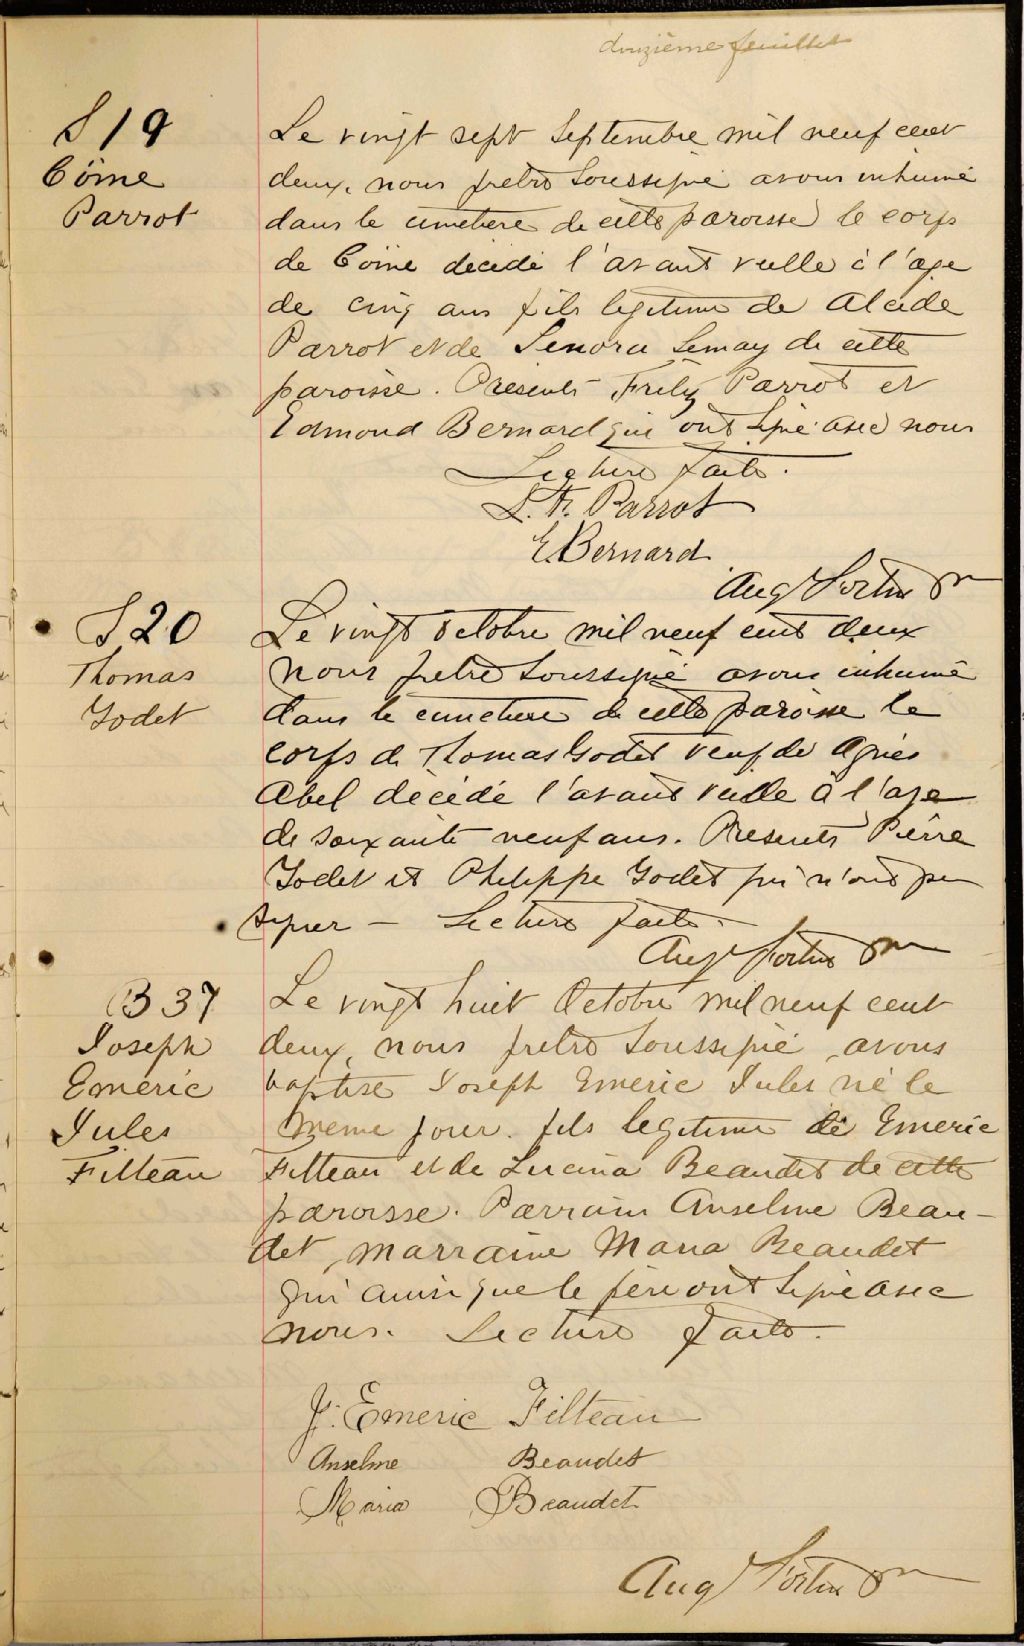 douzième feuillet
S 19
Côme
Parrot
Le vingt sept Septembre mil neuf cent
deux, nous prêtre soussigné avons inhumé
dans le cimetière de cette paroisse le corps
de Côme décédé l'avant veille à l'age
de cinq ans fils légitime de Alcide
Parrot et de Lemay de cette
paroisse. Présents Parrot et
Edmond Bernard qui ont signé avec nous
Lecture faite.
L. F. Parrot
E. Bernard
Aug Fortin Ptre
S 20
Thomas
Godet
Le vingt Octobre mil neuf cent deux
nous prêtre soussigné avons inhumé
dans le cimetière de cette paroisse le
corps de Thomas Godet veuf de Agnès
Abel décédé l'avant veille à l'age
de soixante neuf ans. Présents Pierre
Godet et Philippe Godet qui n'ont pu
signer – Lecture faite.
Aug Fortin Ptre
B 37
Joseph
Emeric
Jules
Filteau
Le vingt huit Octobre mil neuf cent
deux, nous prêtre soussigné, avons
baptisé Joseph Emeric Jules né le
meme jour. fils legitime de Emeric
Filteau et de Lucina Beaudet de cette
paroisse. Parrain Anselme Beau-
det, marraine Maria Beaudet
qui ainsi que le père ont signé avec
nous. Lecture faite.
J. Emeric Filteau
Anselme Beaudet
Maria Beaudet
Aug Fortin Ptre